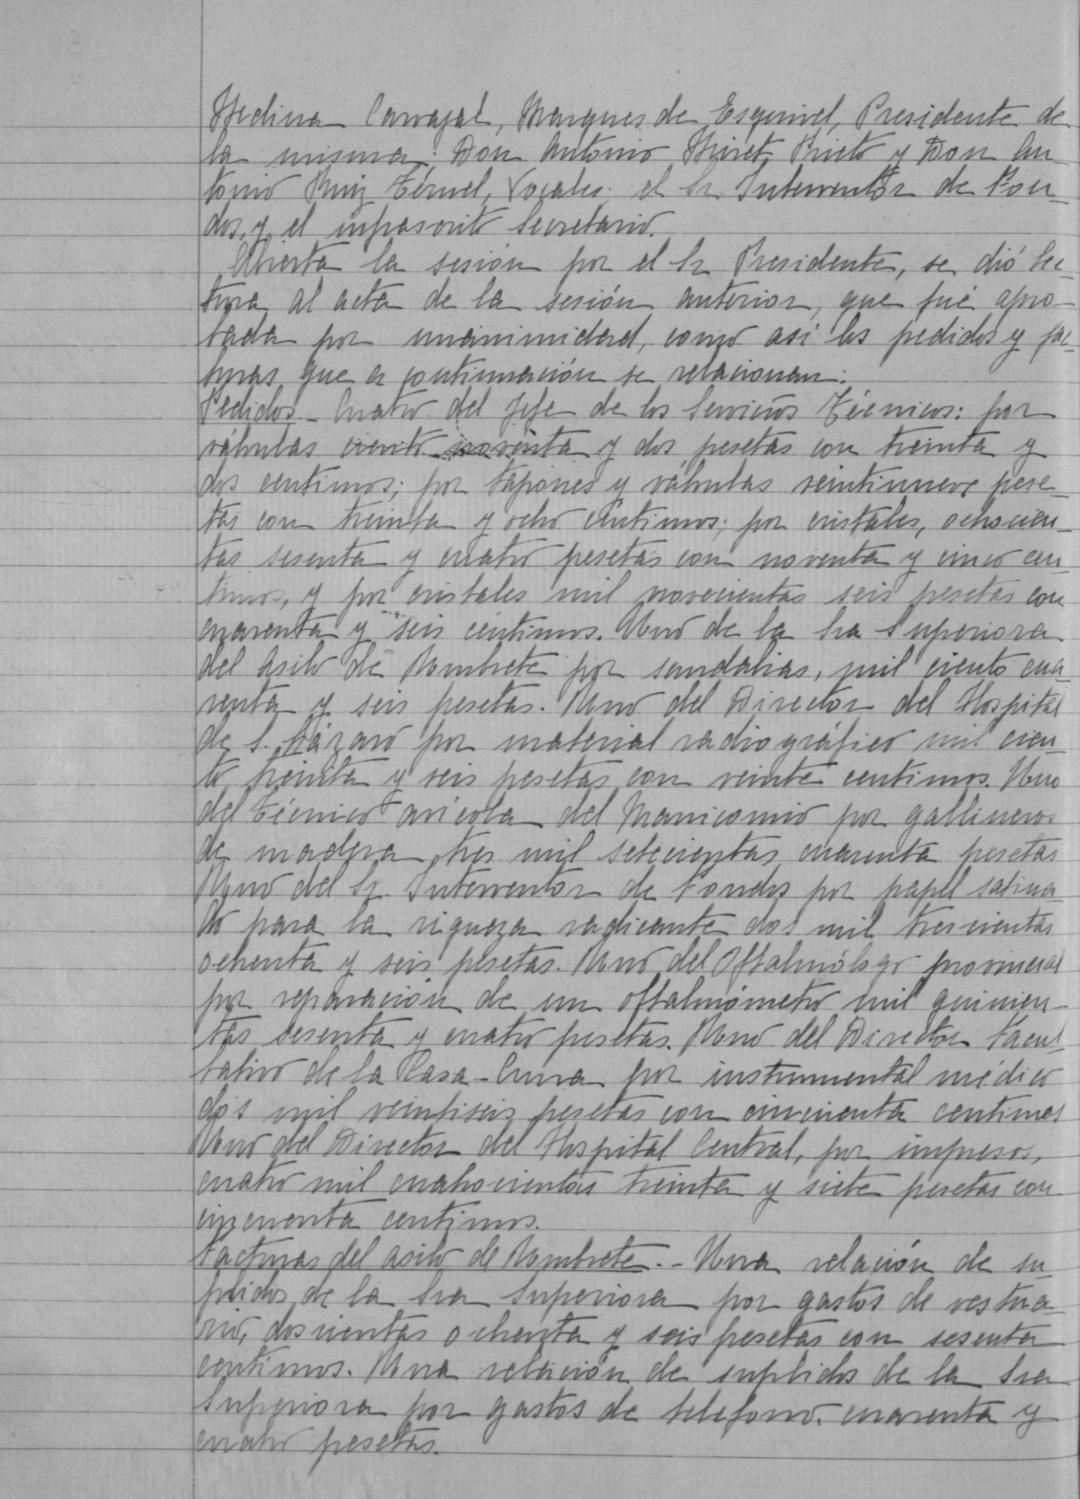 Medina Carvajal, Marques de Esquivel, Presidente de
la misma; Don Antonio Miret Prieto y Don An-
tonio Ruiz Térmel, Vocales; el Sr Interventor de Fon-
dos, y el infrascrito Secretario.
Abierta la sesión por el Sr Presidente, se dió lec-
tura al acta de la sesión anterior, que fué apro-
bada por unanimidad, como así los pedidos y fac-
turas que a continuación se relacionan:
Pedidos - Cuatro del Jefe de los Servicios Técnicos: por
válvulas ciento noventa y dos pesetas con treinta y
dos centimos; por tapones y válvulas veintinueve pese-
tas con treinta y ocho centimos; por cristales, ochocien-
tas sesenta y cuatro pesetas con noventa y cinco cen-
timos, y por cristales mil novecientas seis pesetas con
cuarenta y seis centimos. Uno de la Sra Superiora
del Asilo de Umbrete por sandalias, mil ciento cua-
renta y seis pesetas. Uno del Director del Hospital
de S. Lázaro por material radiográfico mil cien-
to treinta y seis pesetas con veinte centimos. Uno
del Técnico avícola del Manicomio por gallineros
de madera, tres mil setecientas cuarenta pesetas
Uno del Sr. Interventor de Fondos por papel satina-
do para la riqueza radicante dos mil trescientas
ochenta y seis pesetas. Uno del Oftalmólogo provincial
por reparación de un oftalmómetro mil quinien-
tas sesenta y cuatro pesetas. Uno del Director Facul-
tativo de la Casa-Cuna por instrumental médico
dos mil veintiseis pesetas con cincuenta centimos
Uno del Director del Hospital Central, por impresos,
cuatro mil cuatrocientas treinta y siete pesetas con
cincuenta centimos.
Facturas del asilo de Umbrete. - Una relación de su-
plidos de la Sra Superiora por gastos de vestua-
rio, doscientas ochenta y seis pesetas con sesenta
centimos. Una relación de suplidos de la Sra
Superiora por gastos de telefono, cuarenta y
cuatro pesetas.